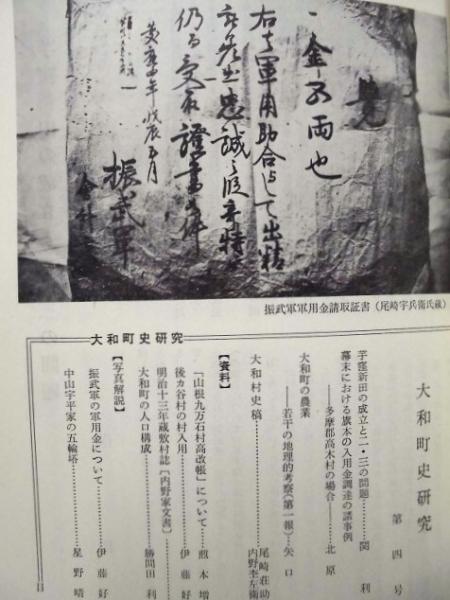 覚
一金 両也
右者軍用助合として出精
忠誠之段奇特
仍而受取證書如件
慶応四年戊辰五月
振武軍
会計
振武軍軍用金請取証書（尾崎宇兵衛氏蔵）
大和町史研究
大和町史研究 第四号
芋窪新田の成立と二・三の問題…関 利
幕末における旗本の入用金調達の諸事例
――多摩郡高木村の場合――北原
大和町の農業
――若干の地理的考察（第一報）――矢口
大和村史稿…尾崎荘助
内野杢左衛
【資料】
「山根九万石村高改帳」について…煎本増
後ヵ谷村の村入用…伊藤好
明治十三年蔵敷村誌〔内野家文書〕
大和町の人口構成…勝間田利
【写真解説】
振武軍の軍用金について…伊藤好
中山宇平家の五輪塔…星野晴